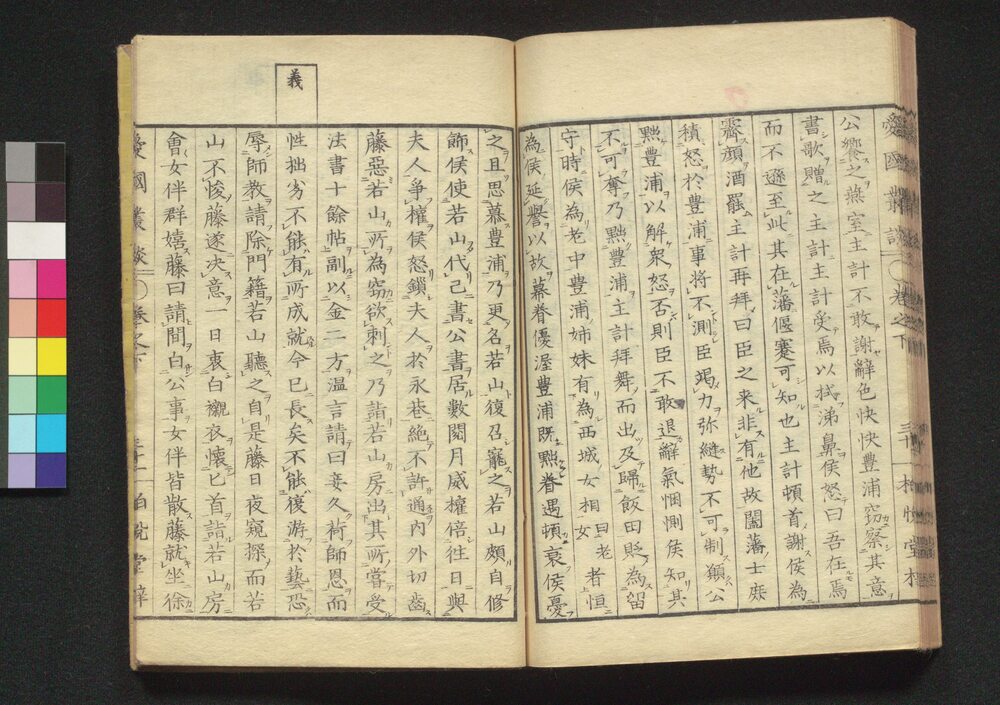 愛國叢談 卷之下 三十 柏悅堂梓
公饗之燕室主計不敢謝辭色怏怏豊浦窃察其意
書歌贈之主計主計受焉以拭涕鼻侯怒曰吾在焉
而不遜至此其在藩偃蹇可知也主計頓首謝侯為
霽顔酒罷主計再拜曰臣之来非有他故闔藩士庶
積怒於豊浦事将不測臣竭力弥縫勢不可制顒公
黜豊浦以解衆怒否則臣不敢退辭氣悃惻侯知其
不可奪乃黜豊浦主計拜舞而出及歸飯田貶為留
守時侯為老中豊浦姉妹有為西城女相女相曰老女者恒
為侯延譽以故幕眷優渥豊浦既黜眷遇頓衰侯憂
之且思慕豊浦乃更名若山復召寵之若山頗自修
飾侯使若山代己書公書居數閲月威權倍往日與
夫人争權侯怒鎖夫人於永巷絶不許通内外切齒
義
藤惡若山所為窃欲刺之乃詣若山房出其所嘗受
法書十餘帖副以金二方温言請曰妾久荷師恩而
性拙劣不能有所成就今已長矣不能復游於藝恐
辱師教請除門籍若山聽之自是藤日夜窺探而若
山不悛藤遂决意一日衷白襯衣懷匕首詣若山房
會女伴群嬉藤曰請間白公事女伴皆散藤就坐徐
愛國叢談 卷之下 三十一 柏悅堂梓